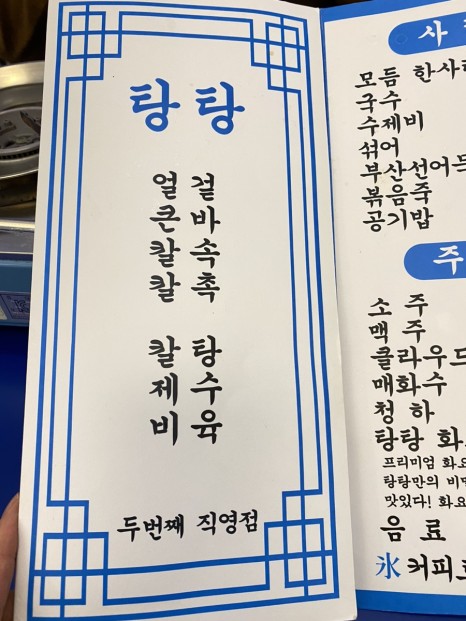 탕탕
얼 걸
큰 바
칼 속
칼 촉
칼 탕
제 수
비 육
두번째 직영점
사
모듬 한사
국수
수제비
섞어
부산선어
볶음죽
공기밥
주
소 주
맥 주
클라우드
매화수
청 하
탕탕 화
프리미엄 화요
탕탕만의 비
맛있다! 화요
음 료
氷커피